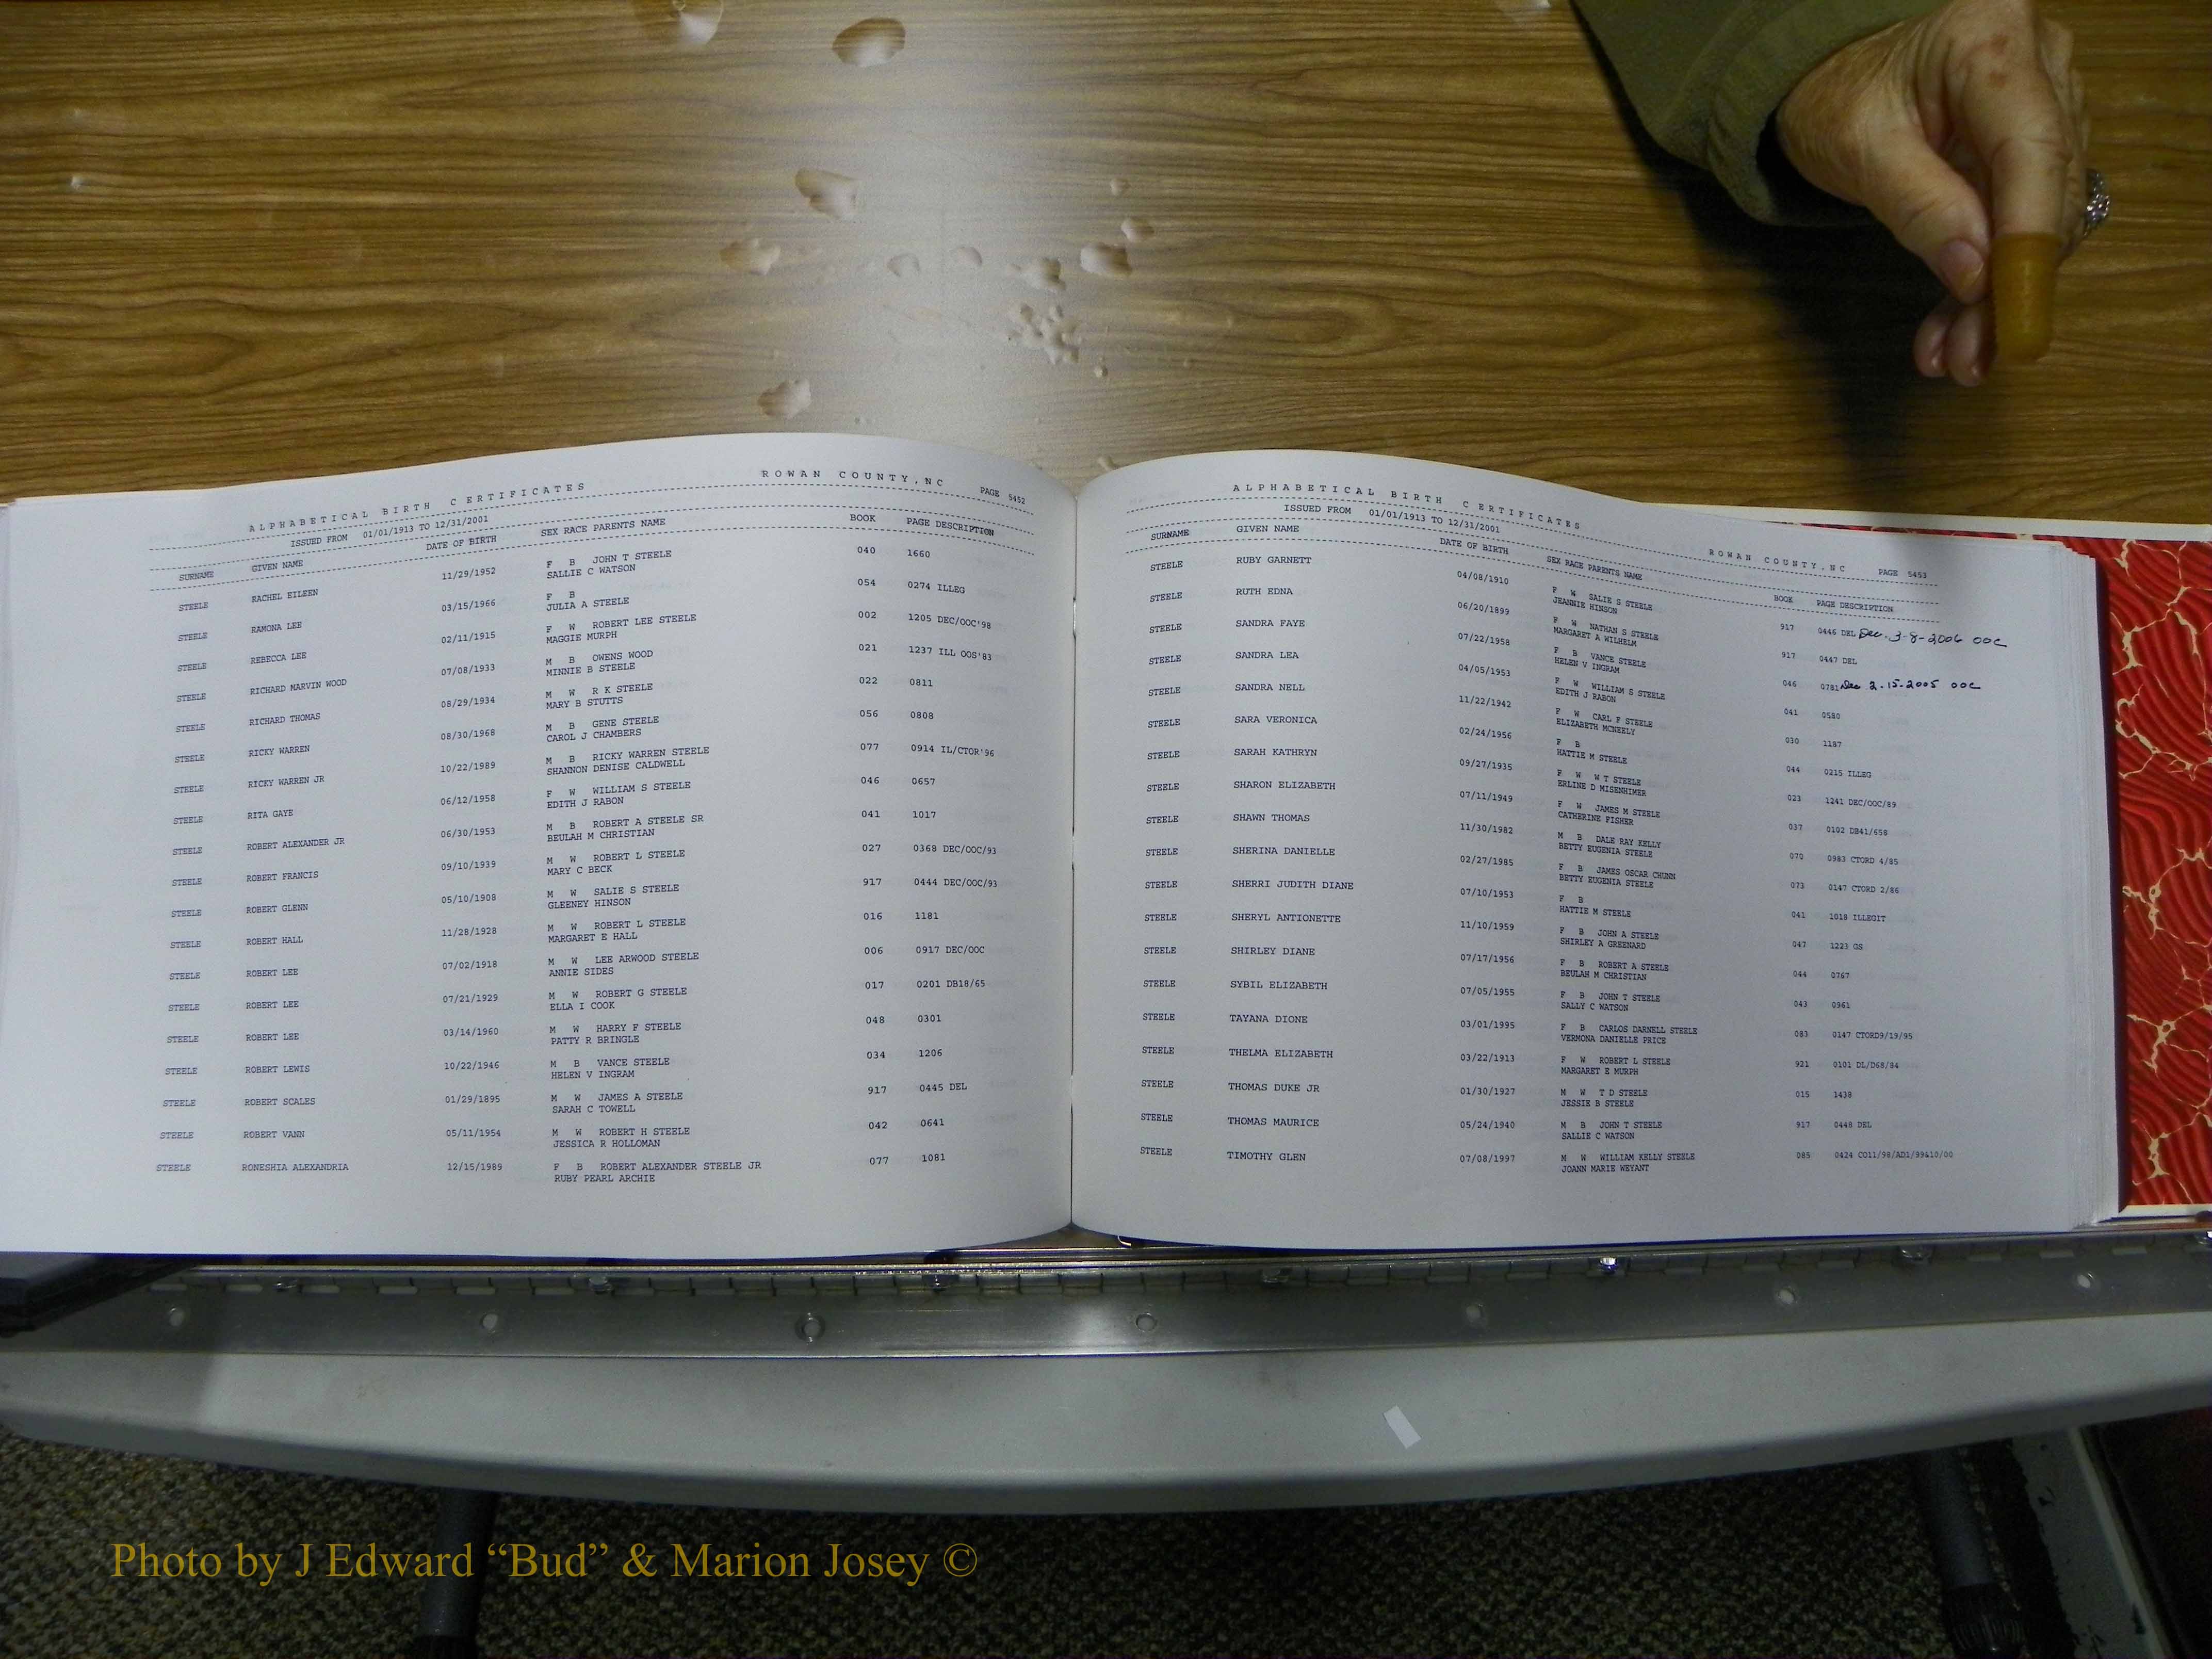 ALPHABETICAL BIRTH CERTIFICATES ROWAN COUNTY, NC PAGE 5452
ISSUED FROM 01/01/1913 TO 12/31/2001
SURNAME GIVEN NAME DATE OF BIRTH SEX RACE PARENTS NAME BOOK PAGE DESCRIPTION
STEELE RACHEL EILEEN 11/29/1952 F B JOHN T STEELE 040 1660
SALLIE C WATSON
STEELE RAMONA LEE 03/15/1966 F B 054 0274 ILLEG
JULIA A STEELE
STEELE REBECCA LEE 02/11/1915 F W ROBERT LEE STEELE 002 1205 DEC/OOC'98
MAGGIE MURPH
STEELE RICHARD MARVIN WOOD 07/08/1933 M B OWENS WOOD 021 1237 ILL OOS'83
MINNIE B STEELE
STEELE RICHARD THOMAS 08/29/1934 M W R K STEELE 022 0811
MARY B STUTTS
STEELE RICKY WARREN 08/30/1968 M B GENE STEELE 056 0808
CAROL J CHAMBERS
STEELE RICKY WARREN JR 10/22/1989 M B RICKY WARREN STEELE 077 0914 IL/CTOR'96
SHANNON DENISE CALDWELL
STEELE RITA GAYE 06/12/1958 F W WILLIAM S STEELE 046 0657
EDITH J RABON
STEELE ROBERT ALEXANDER JR 06/30/1953 M B ROBERT A STEELE SR 041 1017
BEULAH M CHRISTIAN
STEELE ROBERT FRANCIS 09/10/1939 M W ROBERT L STEELE 027 0368 DEC/OOC/93
MARY C BECK
STEELE ROBERT GLENN 05/10/1908 M W SALIE S STEELE 917 0444 DEC/OOC/93
GLEENEY HINSON
STEELE ROBERT HALL 11/28/1928 M W ROBERT L STEELE 016 1181
MARGARET E HALL
STEELE ROBERT LEE 07/02/1918 M W LEE ARWOOD STEELE 006 0917 DEC/OOC
ANNIE SIDES
STEELE ROBERT LEE 07/21/1929 M W ROBERT G STEELE 017 0201 DB18/65
ELLA I COOK
STEELE ROBERT LEE 03/14/1960 M W HARRY F STEELE 048 0301
PATTY R BRINGLE
STEELE ROBERT LEWIS 10/22/1946 M B VANCE STEELE 034 1206
HELEN V INGRAM
STEELE ROBERT SCALES 01/29/1895 M W JAMES A STEELE 917 0445 DEL
SARAH C TOWELL
STEELE ROBERT VANN 05/11/1954 M W ROBERT H STEELE 042 0641
JESSICA R HOLLOMAN
STEELE RONESHIA ALEXANDRIA 12/15/1989 F B ROBERT ALEXANDER STEELE JR 077 1081
RUBY PEARL ARCHIE
ALPHABETICAL BIRTH CERTIFICATES ROWAN COUNTY, NC PAGE 5453
ISSUED FROM 01/01/1913 TO 12/31/2001
SURNAME GIVEN NAME DATE OF BIRTH SEX RACE PARENTS NAME BOOK PAGE DESCRIPTION
STEELE RUBY GARNETT 04/08/1910 F W SALIE S STEELE 917 0446 DEL Dec. 3-8-2006 OOC
JEANNIE HINSON
STEELE RUTH EDNA 06/20/1899 F W NATHAN S STEELE 917 0447 DEL
MARGARET A WILHELM
STEELE SANDRA FAYE 07/22/1958 F B VANCE STEELE 046 0781 Dec 2-15-2005 OOC
HELEN V INGRAM
STEELE SANDRA LEA 04/05/1953 F W WILLIAM S STEELE 041 0580
EDITH J RABON
STEELE SANDRA NELL 11/22/1942 F W CARL F STEELE 030 1187
ELIZABETH MCNEELY
STEELE SARA VERONICA 02/24/1956 F B 044 0215 ILLEG
HATTIE M STEELE
STEELE SARAH KATHRYN 09/27/1935 F W W T STEELE 023 1241 DEC/OOC/89
ERLINE D MISENHIMER
STEELE SHARON ELIZABETH 07/11/1949 F W JAMES M STEELE 037 0102 DB41/658
CATHERINE FISHER
STEELE SHAWN THOMAS 11/30/1982 M B DALE RAY KELLY 070 0983 CTORD 4/85
BETTY EUGENIA STEELE
STEELE SHERINA DANIELLE 02/27/1985 F B JAMES OSCAR CHUNN 073 0147 CTORD 2/86
BETTY EUGENIA STEELE
STEELE SHERRI JUDITH DIANE 07/10/1953 F B 041 1018 ILLEGIT
HATTIE M STEELE
STEELE SHERYL ANTIONETTE 11/10/1959 F B JOHN A STEELE 047 1223 GS
SHIRLEY A GREENARD
STEELE SHIRLEY DIANE 07/17/1956 F B ROBERT A STEELE 044 0767
BEULAH M CHRISTIAN
STEELE SYBIL ELIZABETH 07/05/1955 F B JOHN T STEELE 043 0961
SALLY C WATSON
STEELE TAYANA DIONE 03/01/1995 F B CARLOS DARNELL STEELE 083 0147 CTORD9/19/95
VERMONA DANIELLE PRICE
STEELE THELMA ELIZABETH 03/22/1913 F W ROBERT L STEELE 921 0101 DL/D68/84
MARGARET E MURPH
STEELE THOMAS DUKE JR 01/30/1927 M W T D STEELE 015 1438
JESSIE B STEELE
STEELE THOMAS MAURICE 05/24/1940 M B JOHN T STEELE 917 0448 DEL
SALLIE C WATSON
STEELE TIMOTHY GLEN 07/08/1997 M W WILLIAM KELLY STEELE 085 0424 CO11/98/AD1/99&10/00
JOANN MARIE WEYANT
Photo by J Edward “Bud” & Marion Josey ©